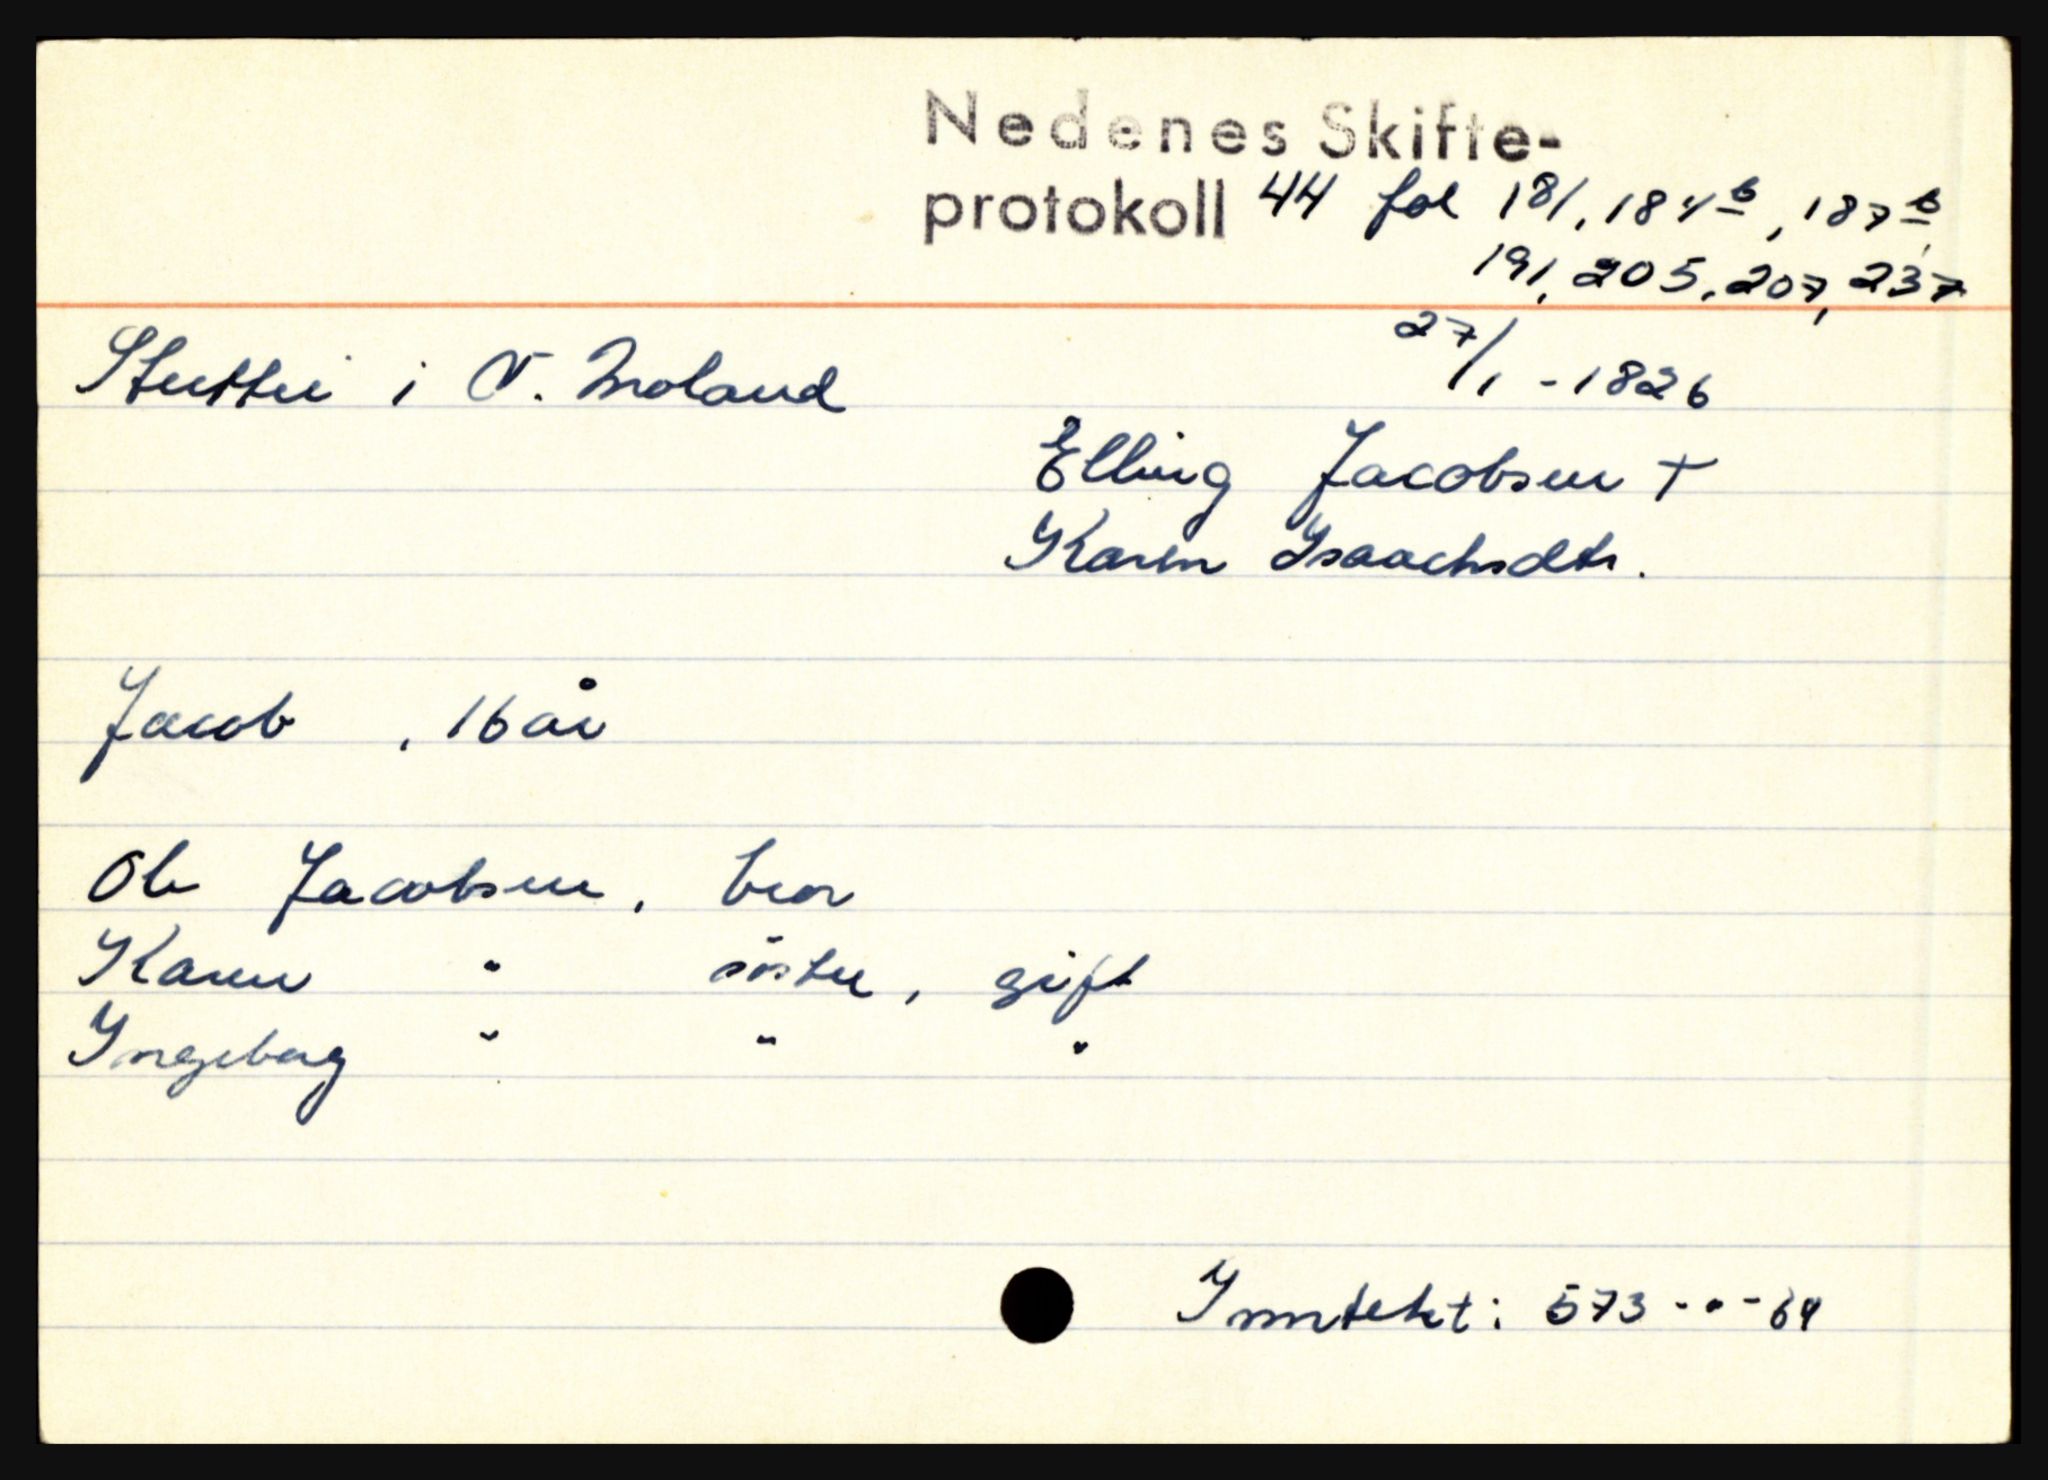 Nedenes Skifte-
protokoll 44 fol 181, 184 b, 187 b,
191, 205, 207, 237
27/1 - 1826
i V. Moland
Elling Jacobsen +
Karen Isaachsdtr.
Jacob , 16 år
Ole Jacobsen, bror
Karen " söster, gift
Ingeborg " " "
Inntekt: 573 - " - 64